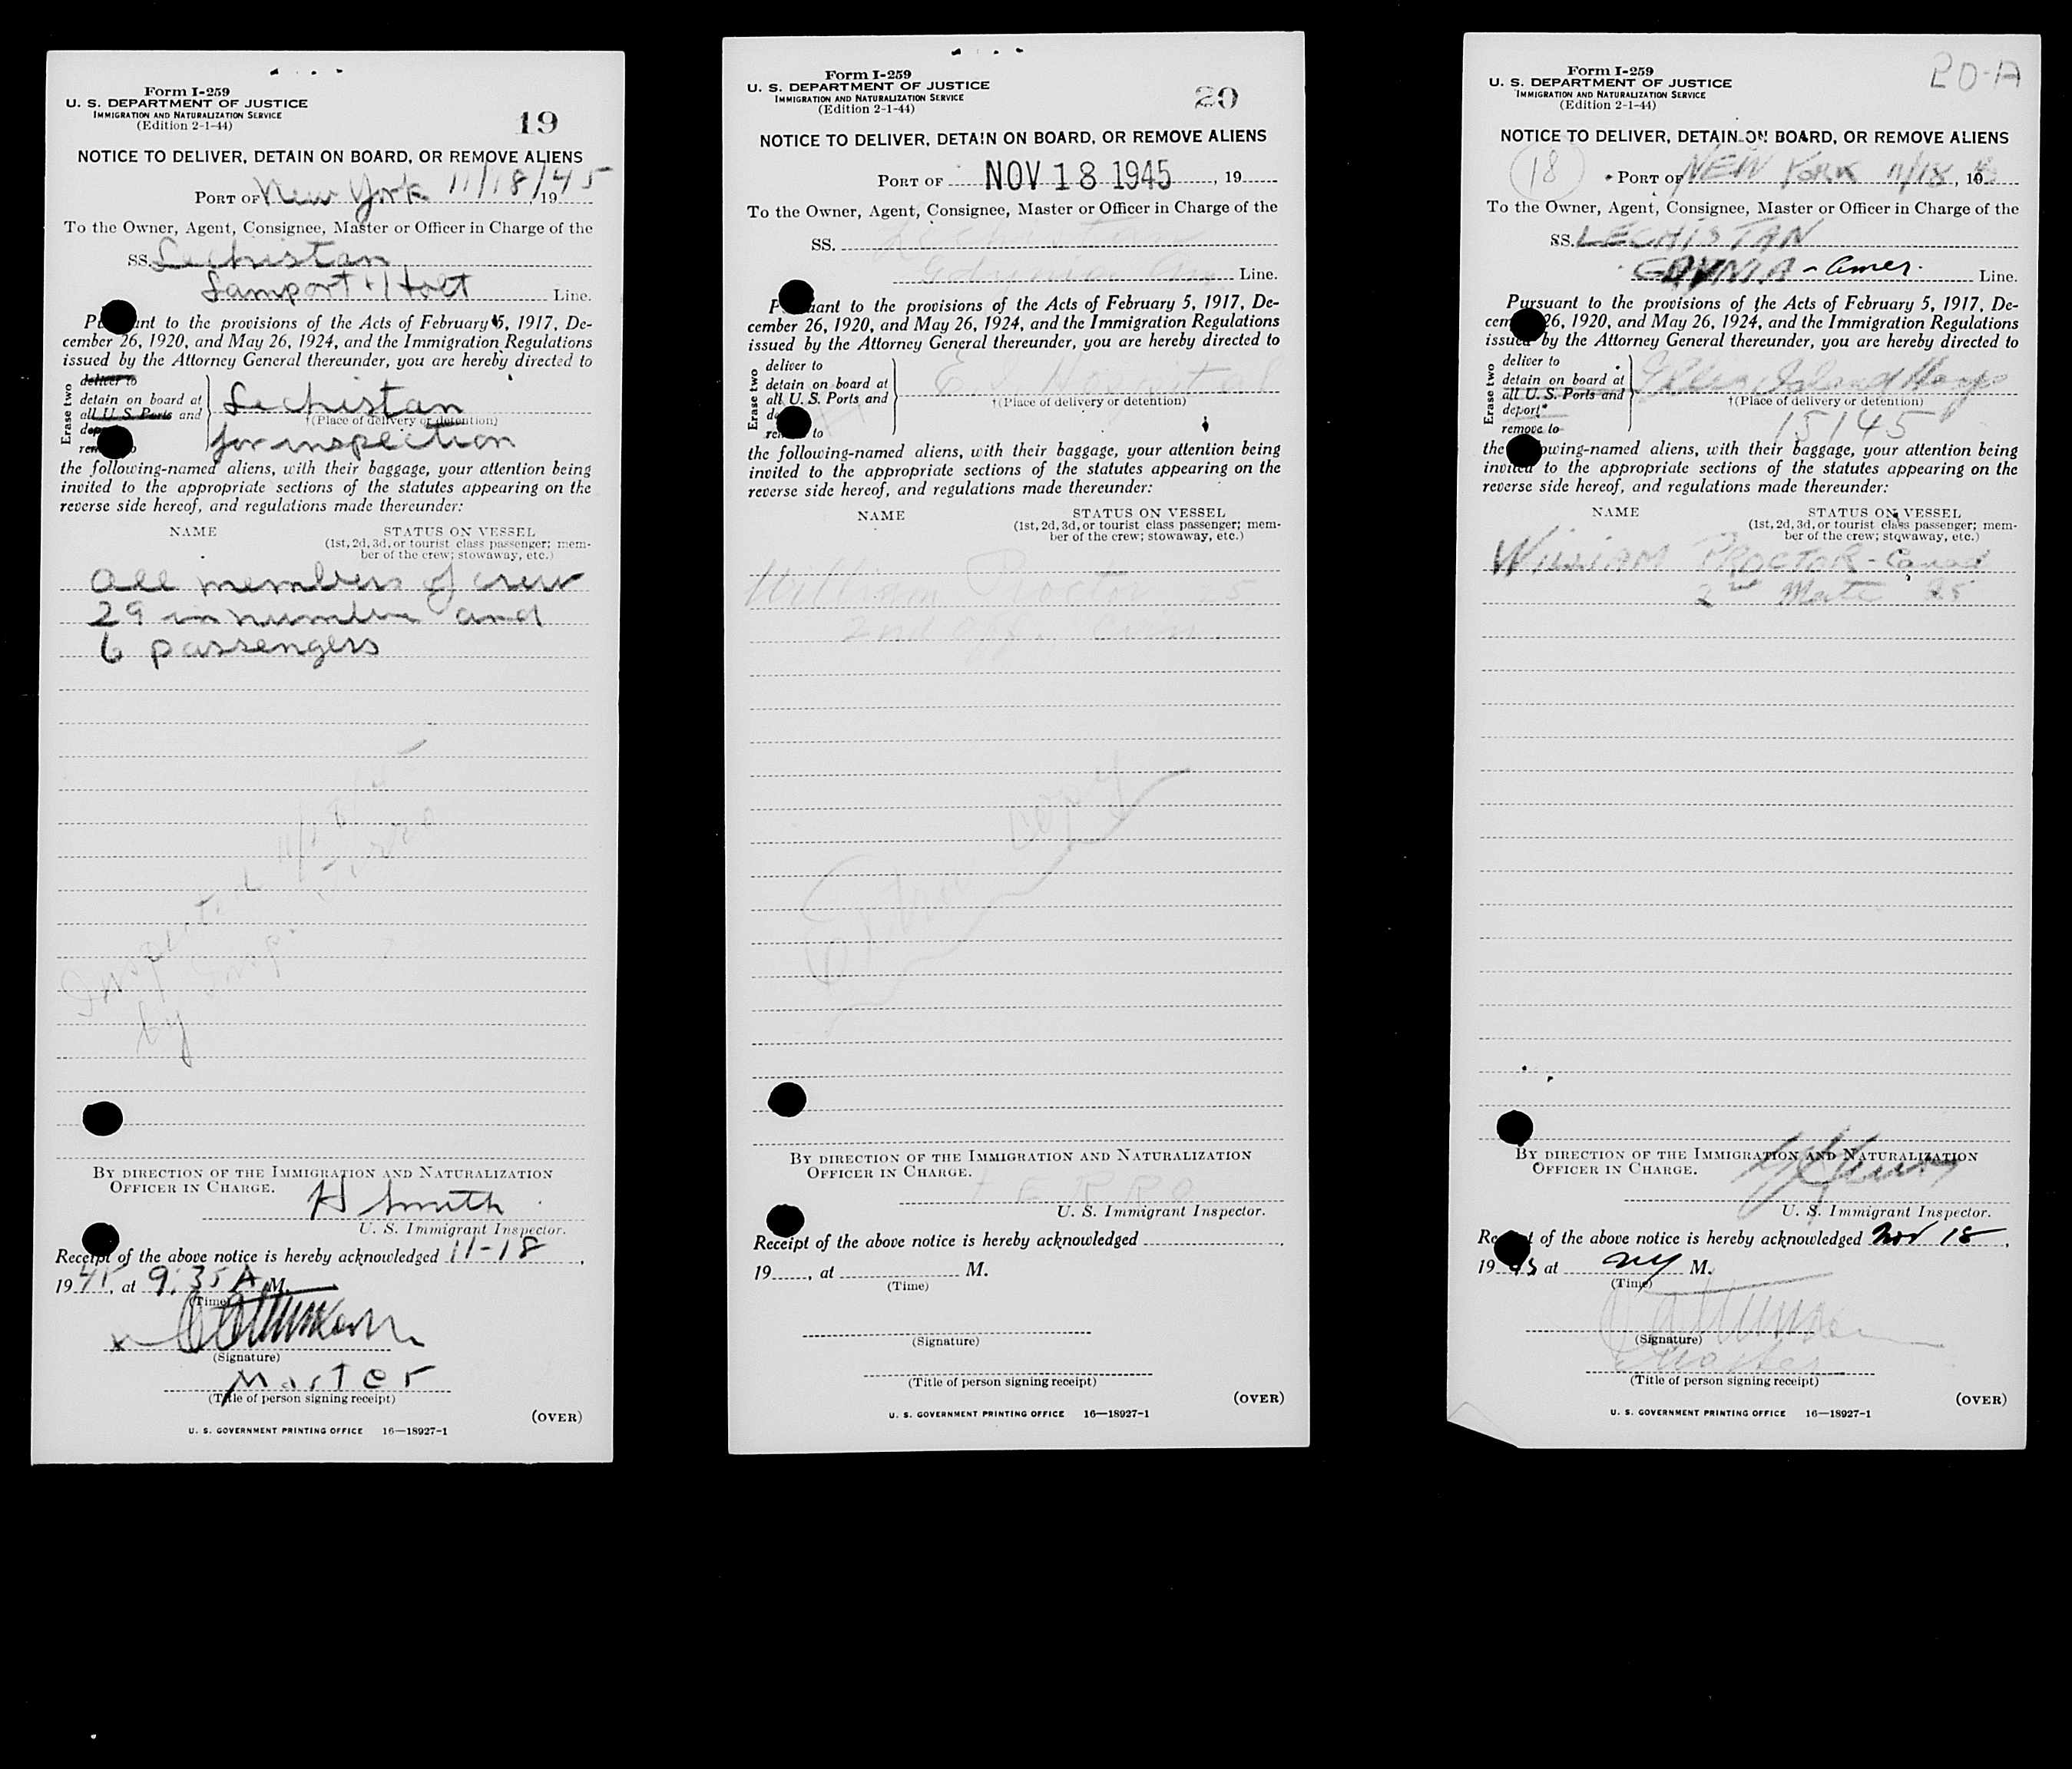 Form I-259
U. S. DEPARTMENT OF JUSTICE
IMMIGRATION AND NATURALIZATION SERVICE
(Edition 2-1-44)
19
NOTICE TO DELIVER, DETAIN ON BOARD, OR REMOVE ALIENS
PORT OF New York 11/18/45, 19
To the Owner, Agent, Consignee, Master or Officer in Charge of the
SS. Lechistan
Lamport + Holt Line.
ant to the provisions of the Acts of February 5, 1917, De-
cember 26, 1920, and May 26, 1924, and the Immigration Regulations
issued by the Attorney General thereunder, you are hereby directed to
Erase two
deliver to
detain on board at
all U. S. Ports and
Lechistan
†(Place of delivery or detention)
for inspection
the following-named aliens, with their baggage, your attention being
invited to the appropriate sections of the statutes appearing on the
reverse side hereof, and regulations made thereunder:
NAME STATUS ON VESSEL
(1st, 2d, 3d, or tourist class passenger; mem-
ber of the crew; stowaway, etc.)
All members of crew
29 in number and
6 passengers
Inspected
by
BY DIRECTION OF THE IMMIGRATION AND NATURALIZATION
OFFICER IN CHARGE.
H Smith
U. S. Immigrant Inspector.
Receipt of the above notice is hereby acknowledged 11-18,
1945, at 9:35 A M.
(Time)
x
(Signature)
Master
(Title of person signing receipt)
(OVER)
U. S. GOVERNMENT PRINTING OFFICE 16—18927-1
Form I-259
U. S. DEPARTMENT OF JUSTICE
IMMIGRATION AND NATURALIZATION SERVICE
(Edition 2-1-44)
20
NOTICE TO DELIVER, DETAIN ON BOARD, OR REMOVE ALIENS
PORT OF NOV 18 1945, 19
To the Owner, Agent, Consignee, Master or Officer in Charge of the
SS. Lechistan
Gdynia Am. Line.
ant to the provisions of the Acts of February 5, 1917, De-
cember 26, 1920, and May 26, 1924, and the Immigration Regulations
issued by the Attorney General thereunder, you are hereby directed to
Erase two
deliver to
detain on board at
all U. S. Ports and
to
E. I. Hospital
†(Place of delivery or detention)
the following-named aliens, with their baggage, your attention being
invited to the appropriate sections of the statutes appearing on the
reverse side hereof, and regulations made thereunder:
NAME STATUS ON VESSEL
(1st, 2d, 3d, or tourist class passenger; mem-
ber of the crew; stowaway, etc.)
William Proctor 25
2nd Off.
copy
BY DIRECTION OF THE IMMIGRATION AND NATURALIZATION
OFFICER IN CHARGE.
U. S. Immigrant Inspector.
Receipt of the above notice is hereby acknowledged
19, at M.
(Time)
(Signature)
(Title of person signing receipt)
(OVER)
U. S. GOVERNMENT PRINTING OFFICE 16—18927-1
20-A
Form I-259
U. S. DEPARTMENT OF JUSTICE
IMMIGRATION AND NATURALIZATION SERVICE
(Edition 2-1-44)
NOTICE TO DELIVER, DETAIN ON BOARD, OR REMOVE ALIENS
18
PORT OF NEW YORK 11/18, 19
To the Owner, Agent, Consignee, Master or Officer in Charge of the
SS. LECHISTAN
GDYNIA - Amer. Line.
Pursuant to the provisions of the Acts of February 5, 1917, De-
26, 1920, and May 26, 1924, and the Immigration Regulations
issued by the Attorney General thereunder, you are hereby directed to
Erase two
deliver to
detain on board at
all U. S. Ports and
deport*
remove to
Ellis Island Hosp
†(Place of delivery or detention)
15145
the following-named aliens, with their baggage, your attention being
invited to the appropriate sections of the statutes appearing on the
reverse side hereof, and regulations made thereunder:
NAME STATUS ON VESSEL
(1st, 2d, 3d, or tourist class passenger; mem-
ber of the crew; stowaway, etc.)
WILLIAM PROCTOR - Canad
2nd Mate 25
BY DIRECTION OF THE IMMIGRATION AND NATURALIZATION
OFFICER IN CHARGE.
U. S. Immigrant Inspector.
Receipt of the above notice is hereby acknowledged Nov 18,
19 45 at NY M.
(Time)
(Signature)
Master
(Title of person signing receipt)
(OVER)
U. S. GOVERNMENT PRINTING OFFICE 16—18927-1